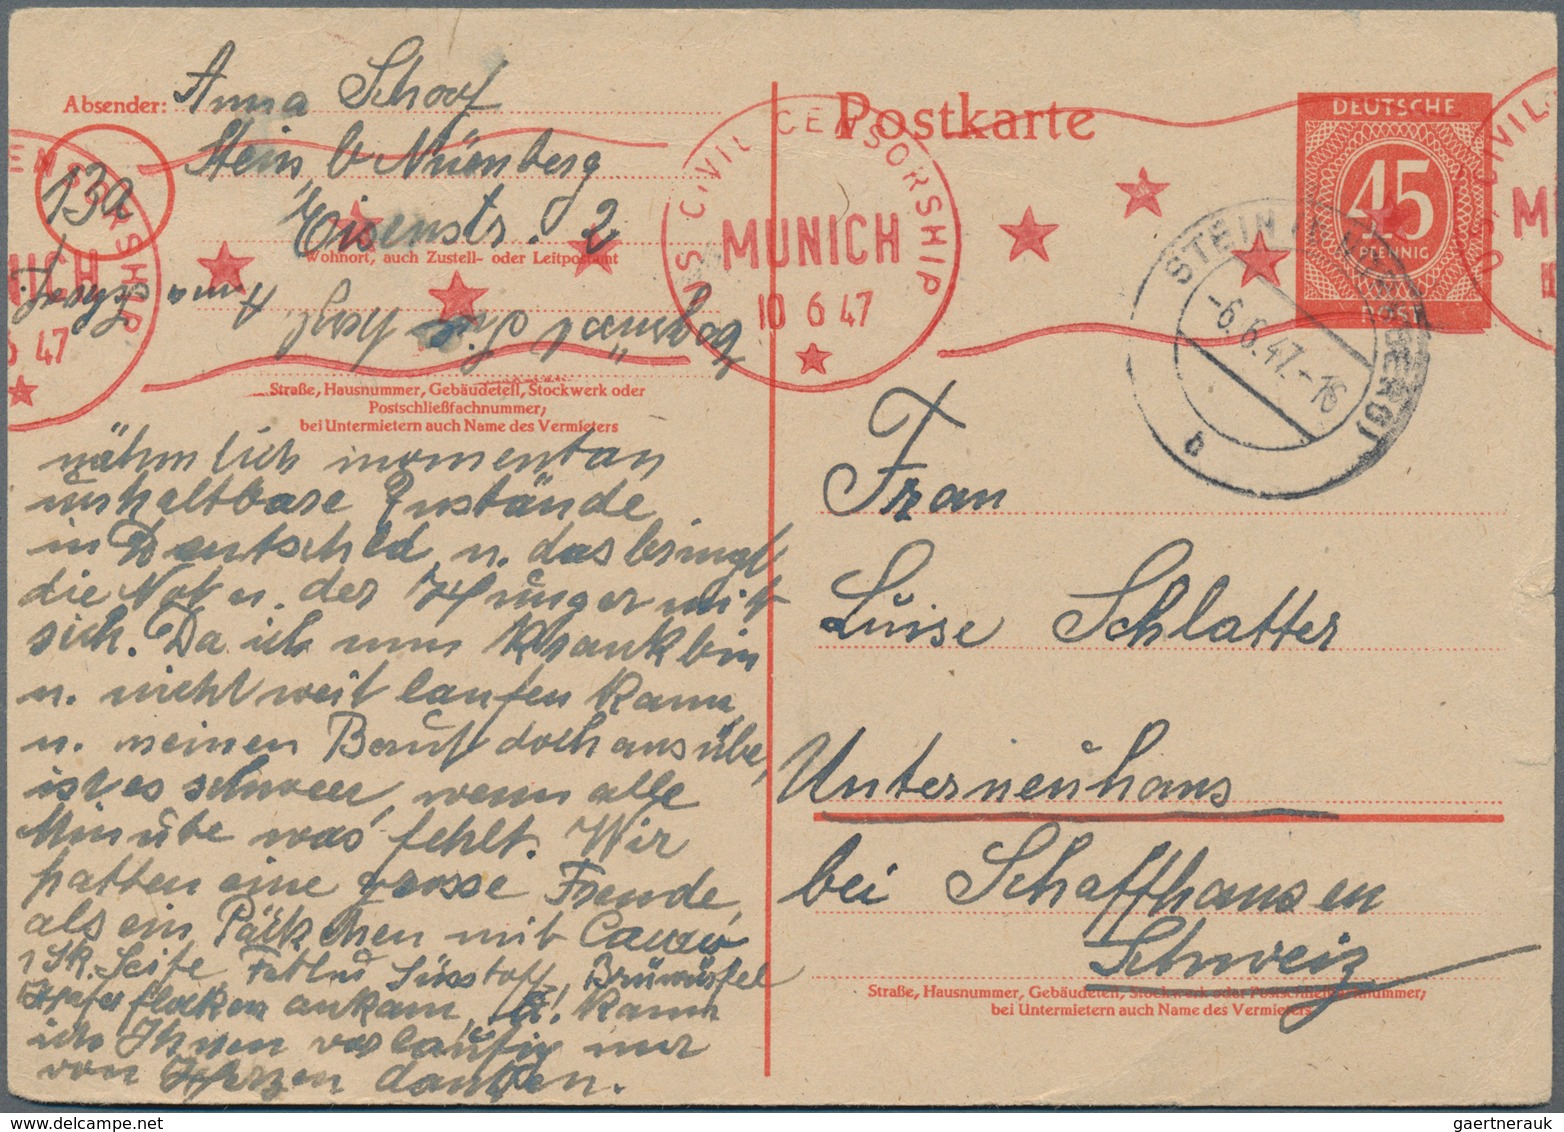 Absender: Anna Schoof
Stein b Nürnberg
13a
Eisenstr. 2
Wohnort, auch Zustell- oder Leitpostamt
Anna Schoof
Straße, Hausnummer, Gebäudeteil, Stockwerk oder
Postschließfachnummer;
bei Untermietern auch Name des Vermieters
nähmlich momentan
unhaltbare Zustände
in Deutschld u. das bringt
die Not u. der Hunger mit
sich. Da ich nun krank bin
u. nicht weit laufen kann
u. meinen Beruf doch ausübe,
ist es schwer, wenn alle
Minute was fehlt. Wir
hatten eine grosse Freude,
als ein Päckchen mit
1 Sk. Seife Süsstoff, Brüwürfel
Haferflocken ankam, kann
ich Ihnen vorläufig nur
von Herzen danken.
US CIVIL CENSORSHIP
MUNICH
10 6 47
Postkarte
DEUTSCHE
45
PFENNIG
POST
STEIN (B NÜRNBERG)
-6.6.47.-16
b
CENSORSHIP
NICH
6 47
US CIVIL
M
Frau
Luise Schlatter
Unterneuhaus
bei Schaffhausen
Schweiz
Straße, Hausnummer, Gebäudeteil, Stockwerk oder Postschließfachnummer;
bei Untermietern auch Name des Vermieters
gaertnerauk